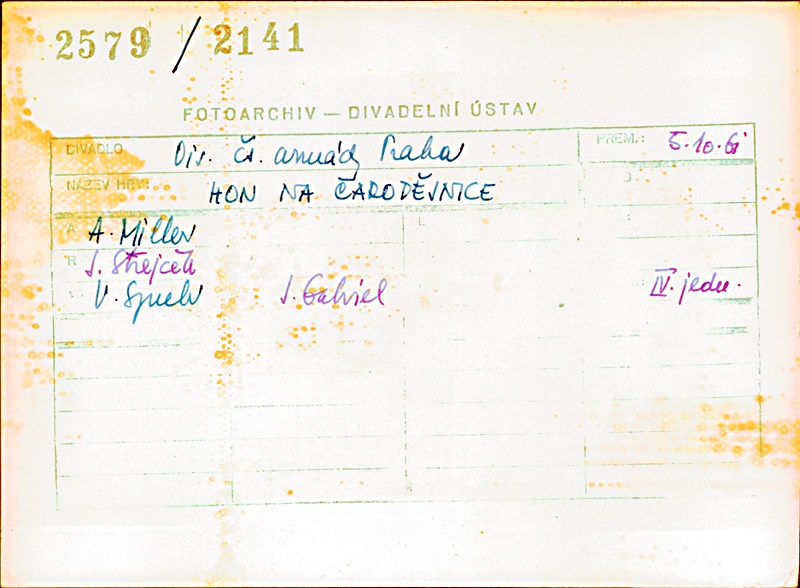 2579 / 2141
FOTOARCHIV — DIVADELNÍ ÚSTAV
DIVADLO Div. čs. armády Praha PREM.: 5.10.61
NÁZEV HRY: HON NA ČARODĚJNICE
A A. Miller L
R J. Strejček
V. Špuch J. Gabriel IV. jedn.